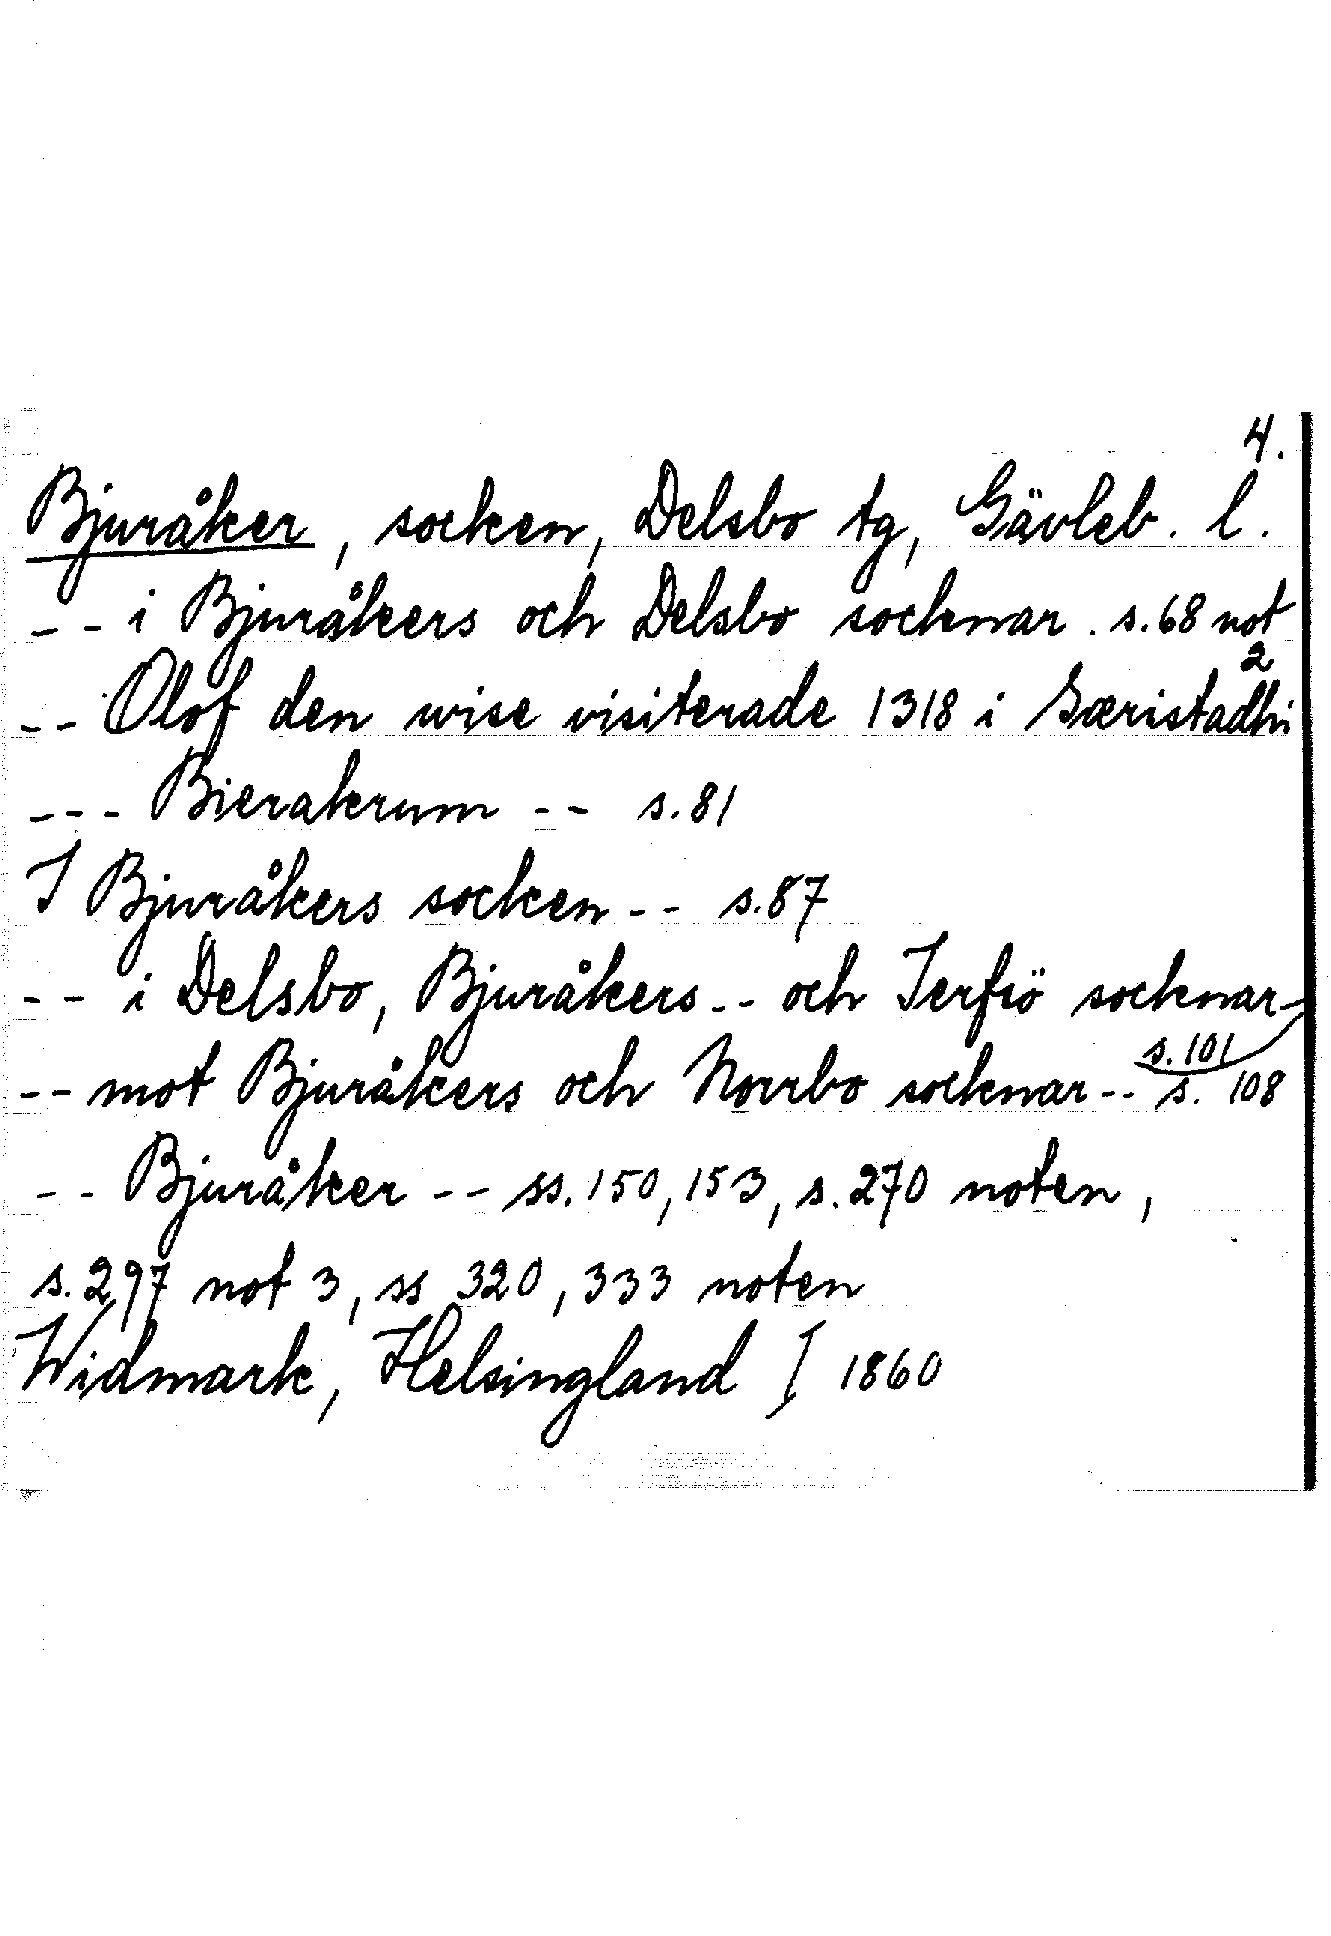 4.
Bjuråker, socken, Delsbo tg, Gävleb. l.
-- i Bjuråkers och Delsbo socknar. s.68 not 2
-- Olof den wise visiterade 1318 i Gæristadhi
--- Bierakrum -- s.81
I Bjuråkers socken -- s.87
-- i Delsbo, Bjuråkers -- och Jerfsö socknar -
s.101
-- mot Bjuråkers och Norrbo socknar -- s. 108
-- Bjuråker -- ss.150, 153, s.270 noten,
s.297 not 3, ss 320, 333 noten
Widmark, Helsingland I 1860